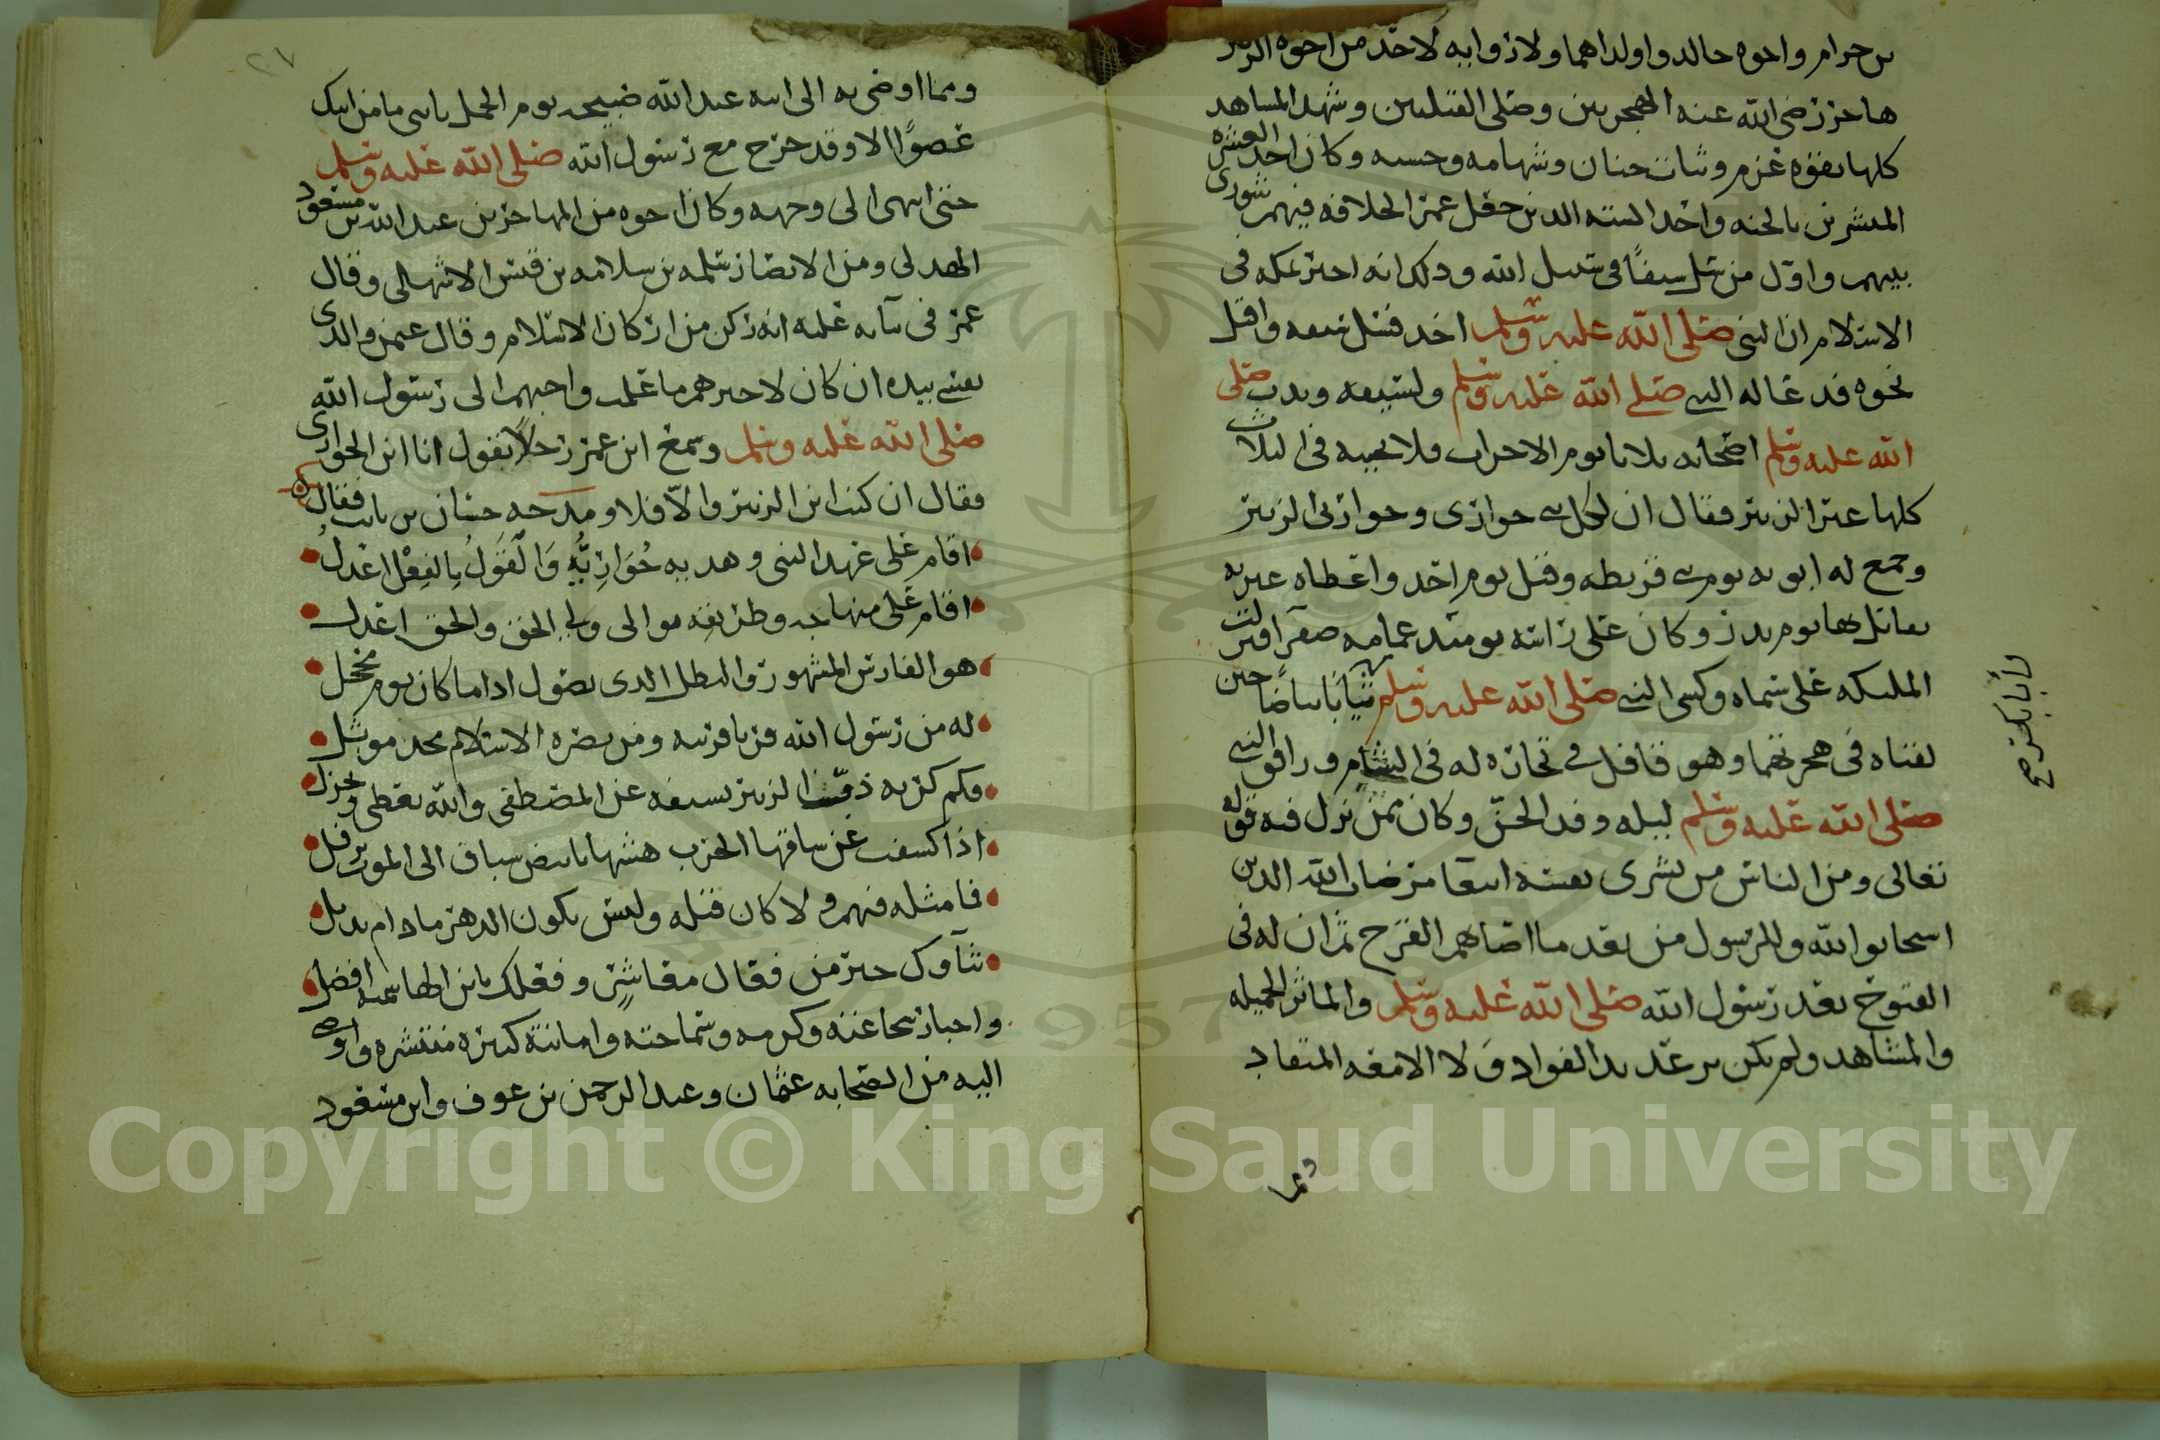 بن حرام واخوه خالد واولداهما ولاذوا به لاحد من اخوه الزبير
هاجر رضي الله عنه الهجرتين وصلى القبلتين وشهد المشاهد
كلها بقوه عزم وثبات جنان وشهامه وحسبه وكان احد العشره
المبشرين بالجنه واحد السته الذين جعل عمر الخلافه فيهم شورى
بينهم واول من سل سيفًا في سبيل الله وذلك انه اخبر بمكه في
الاسلام ان النبي صلى الله عليه وسلم اخذ فسل سيفه واقبل
نحوه فدعا له النبي صلى الله عليه وسلم ولسيفه وندب صلى
الله عليه وسلم اصحابه ثلاثا يوم الاحزاب فلا يجيبه في الثلاث
كلها غير الزبير فقال ان لكل نبي حواري وحواريي الزبير
وجمع له ابويه يومي قريظه وقيل يوم احد واعطاه عنزته
يقاتل بها يوم بدر وكان على راسه يومئذ عمامه صفرآ فنزلت
الملئكه على سيماه وكسى النبي صلى الله عليه وسلم ثيابًا بياضًا حين
لقياه في هجرتهما وهو قافل في تجاره له في الشام ورافق النبي
صلى الله عليه وسلم ليله وفد الجن وكان ممن نزل فيه قوله
تعالى ومن الناس من يشرى نفسه ابتغا مرضات الله الذين
استجابوا لله وللرسول من بعد ما اصابهم القرح ثم ان له في
الفتوح بعد رسول الله صلى الله عليه وسلم والماثر الجميله
والمشاهد ولم يكن يرعد الفواد ولا الامعه المنقاد
ومما
ومما اوصى به الى ابنه عبد الله صبيحه يوم الجمل يا بني ما من ابيك
عضوًا الا وقد جرح مع رسول الله صلى الله عليه وسلم
حتى انتهى الى وجهه وكان اخوه من المهاجرين عبد الله بن مسعود
الهذلي ومن الانصار سلمه بن سلامه بن قيس الاشهلي وقال
عمر في شانه عليه انه ركن من اركان الاسلام وقال عثمن والذي
نفسي بيده ان كان لاخيرهم ما علمت واحبهم الى رسول الله
صلى الله عليه وسلم وسمع ابن عمر رجلاً يقول انا ابن الحواري
فقال ان كنت ابن الزبير والّا فلا ومدحه حسان بن ثابت فقال
اقام على عهد النبي وهديه حُوَارِيُّهُ وَالقَولُ بِالفِعْلِ اعْدلُ
اقام على منهاجه وطريقه موالي ولي الحق والحق اعدل
هو الفارس المشهور والبطل الذي يصول اذا ما كان يوم محجل
له من رسول الله قربا قريبه ومن نصره الاسلام مجد موثل
فكم كربه ذب الزبير بسيفه عن المصطفى والله يعطي ويجزل
اذا كشفت عن ساقها الحرب هشها بابيض سباق الى الموت يرفل
فما مثله فيهم ولا كان قبله وليس يكون الدهر ما دام يذبل
ثنآوك خير من فعال معاشرٍ وفعلك يا بن الهاشميه افضل
واخبار شجاعته وكرمه وسماحته وامانته كثيره منتشره واوصى
اليه من الصحابه عثمان وعبد الرحمن بن عوف وابن مسعود